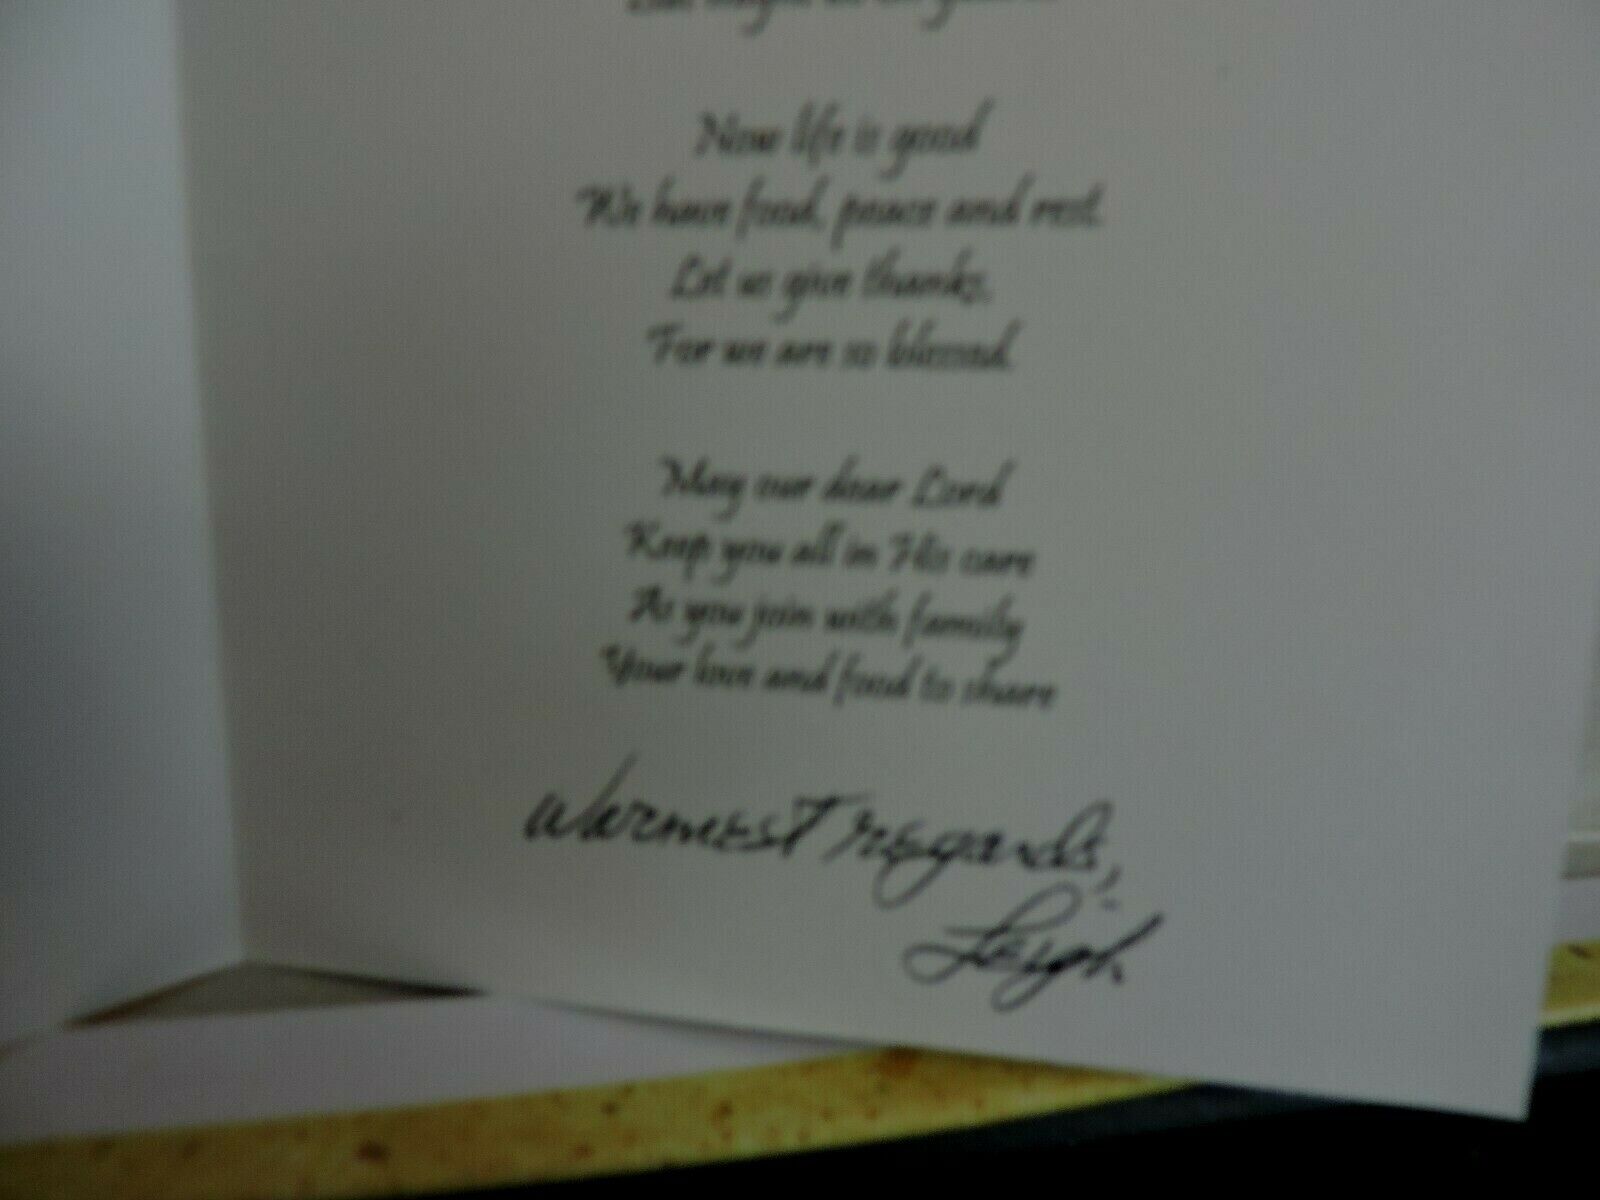 Now life is good
We have food, peace and rest.
Let us give thanks,
For we are so blessed.
May our dear Lord
Keep you all in His care
As you join with family
Your love and food to share
Warmest regards,
Leigh